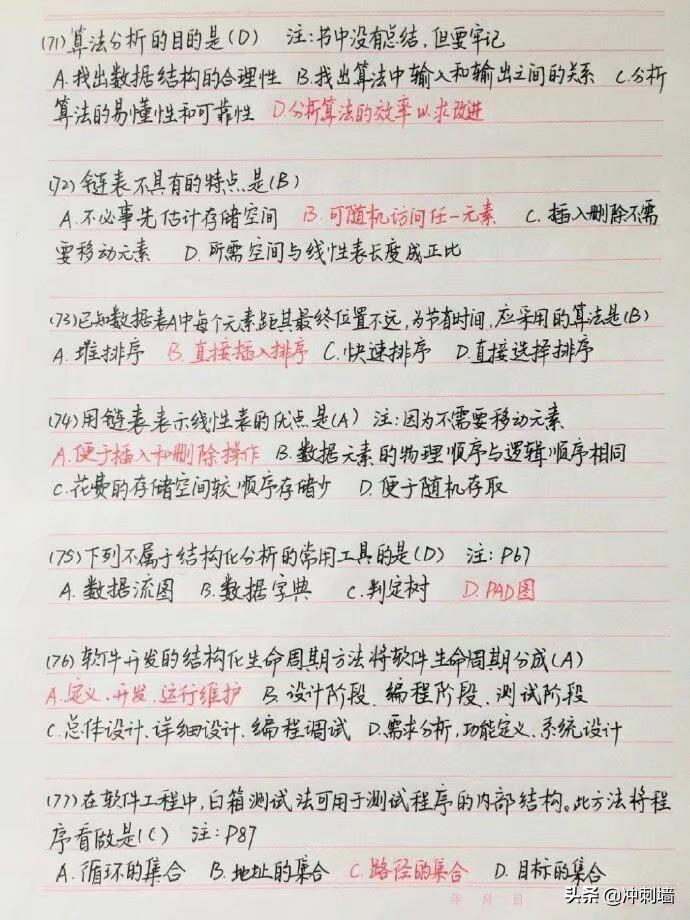 (71)算法分析的目的是(D) 注:书中没有总结,但要牢记
A.找出数据结构的合理性 B.找出算法中输入和输出之间的关系 C.分析
算法的易懂性和可靠性 D.分析算法的效率以求改进
(72)链表不具有的特点是(B)
A.不必事先估计存储空间 B.可随机访问任一元素 C.插入删除不需
要移动元素 D.所需空间与线性表长度成正比
(73)已知数据表A中每个元素距其最终位置不远,为节省时间,应采用的算法是(B)
A.堆排序 B.直接插入排序 C.快速排序 D.直接选择排序
(74)用链表表示线性表的优点是(A) 注:因为不需要移动元素
A.便于插入和删除操作 B.数据元素的物理顺序与逻辑顺序相同
C.花费的存储空间较顺序存储少 D.便于随机存取
(75)下列不属于结构化分析的常用工具的是(D) 注:P67
A.数据流图 B.数据字典 C.判定树 D.PAD图
(76)软件开发的结构化生命周期方法将软件生命周期分成(A)
A.定义、开发、运行维护 B.设计阶段、编程阶段、测试阶段
C.总体设计、详细设计、编程调试 D.需求分析,功能定义、系统设计
(77)在软件工程中,白箱测试法可用于测试程序的内部结构。此方法将程
序看做是(C) 注:P87
A.循环的集合 B.地址的集合 C.路径的集合 D.目标的集合
年 月 日
头条 @冲刺墙